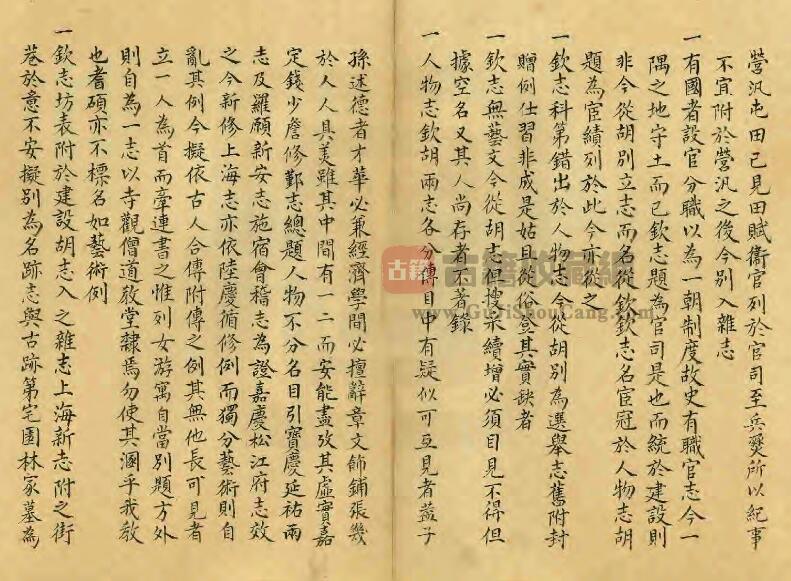 營汛屯田已見田賦衞官列於官司至兵燹所以紀事
不宜附於營汛之後今別入雜志
一有國者設官分職以為一朝制度故史有職官志今一
隅之地守土而已欽志題為官司是也而統於建設則
非今從胡別立志而名從欽欽志名宦冠於人物志胡
題為宦績列於此今亦從之
一欽志科第錯出於人物志今從胡別為選舉志舊附封
贈例仕習非成是姑且從俗登其實缺者
一欽志無藝文今從胡志但搜采續增必須目見不得但
據空名又其人尚存者不著錄
一人物志欽胡兩志各分傳目中有疑似可互見者益子
孫述德者才華必兼經濟學問必擅辭章文飾鋪張幾
於人人具美雖其中間有一二而安能盡攷其虛實嘉
定錢少詹修鄞志總題人物不分名目引寶慶延祐兩
志及羅願新安志施宿會稽志為證嘉慶松江府志效
之今新修上海志亦依陸慶循修例而獨分藝術則自
亂其例今擬依古人合傳附傳之例其無他長可見者
立一人為首而牽連書之惟列女游寓自當別題方外
則自為一志以寺觀僧道敎堂隸焉勿使其溷乎我敎
也耆碩亦不標名如藝術例
一欽志坊表附於建設胡志入之雜志上海新志附之街
巷於意不安擬別為名跡志與古跡第宅園林冢墓為
古籍
古籍收藏網
www.GuJiShouCang.com